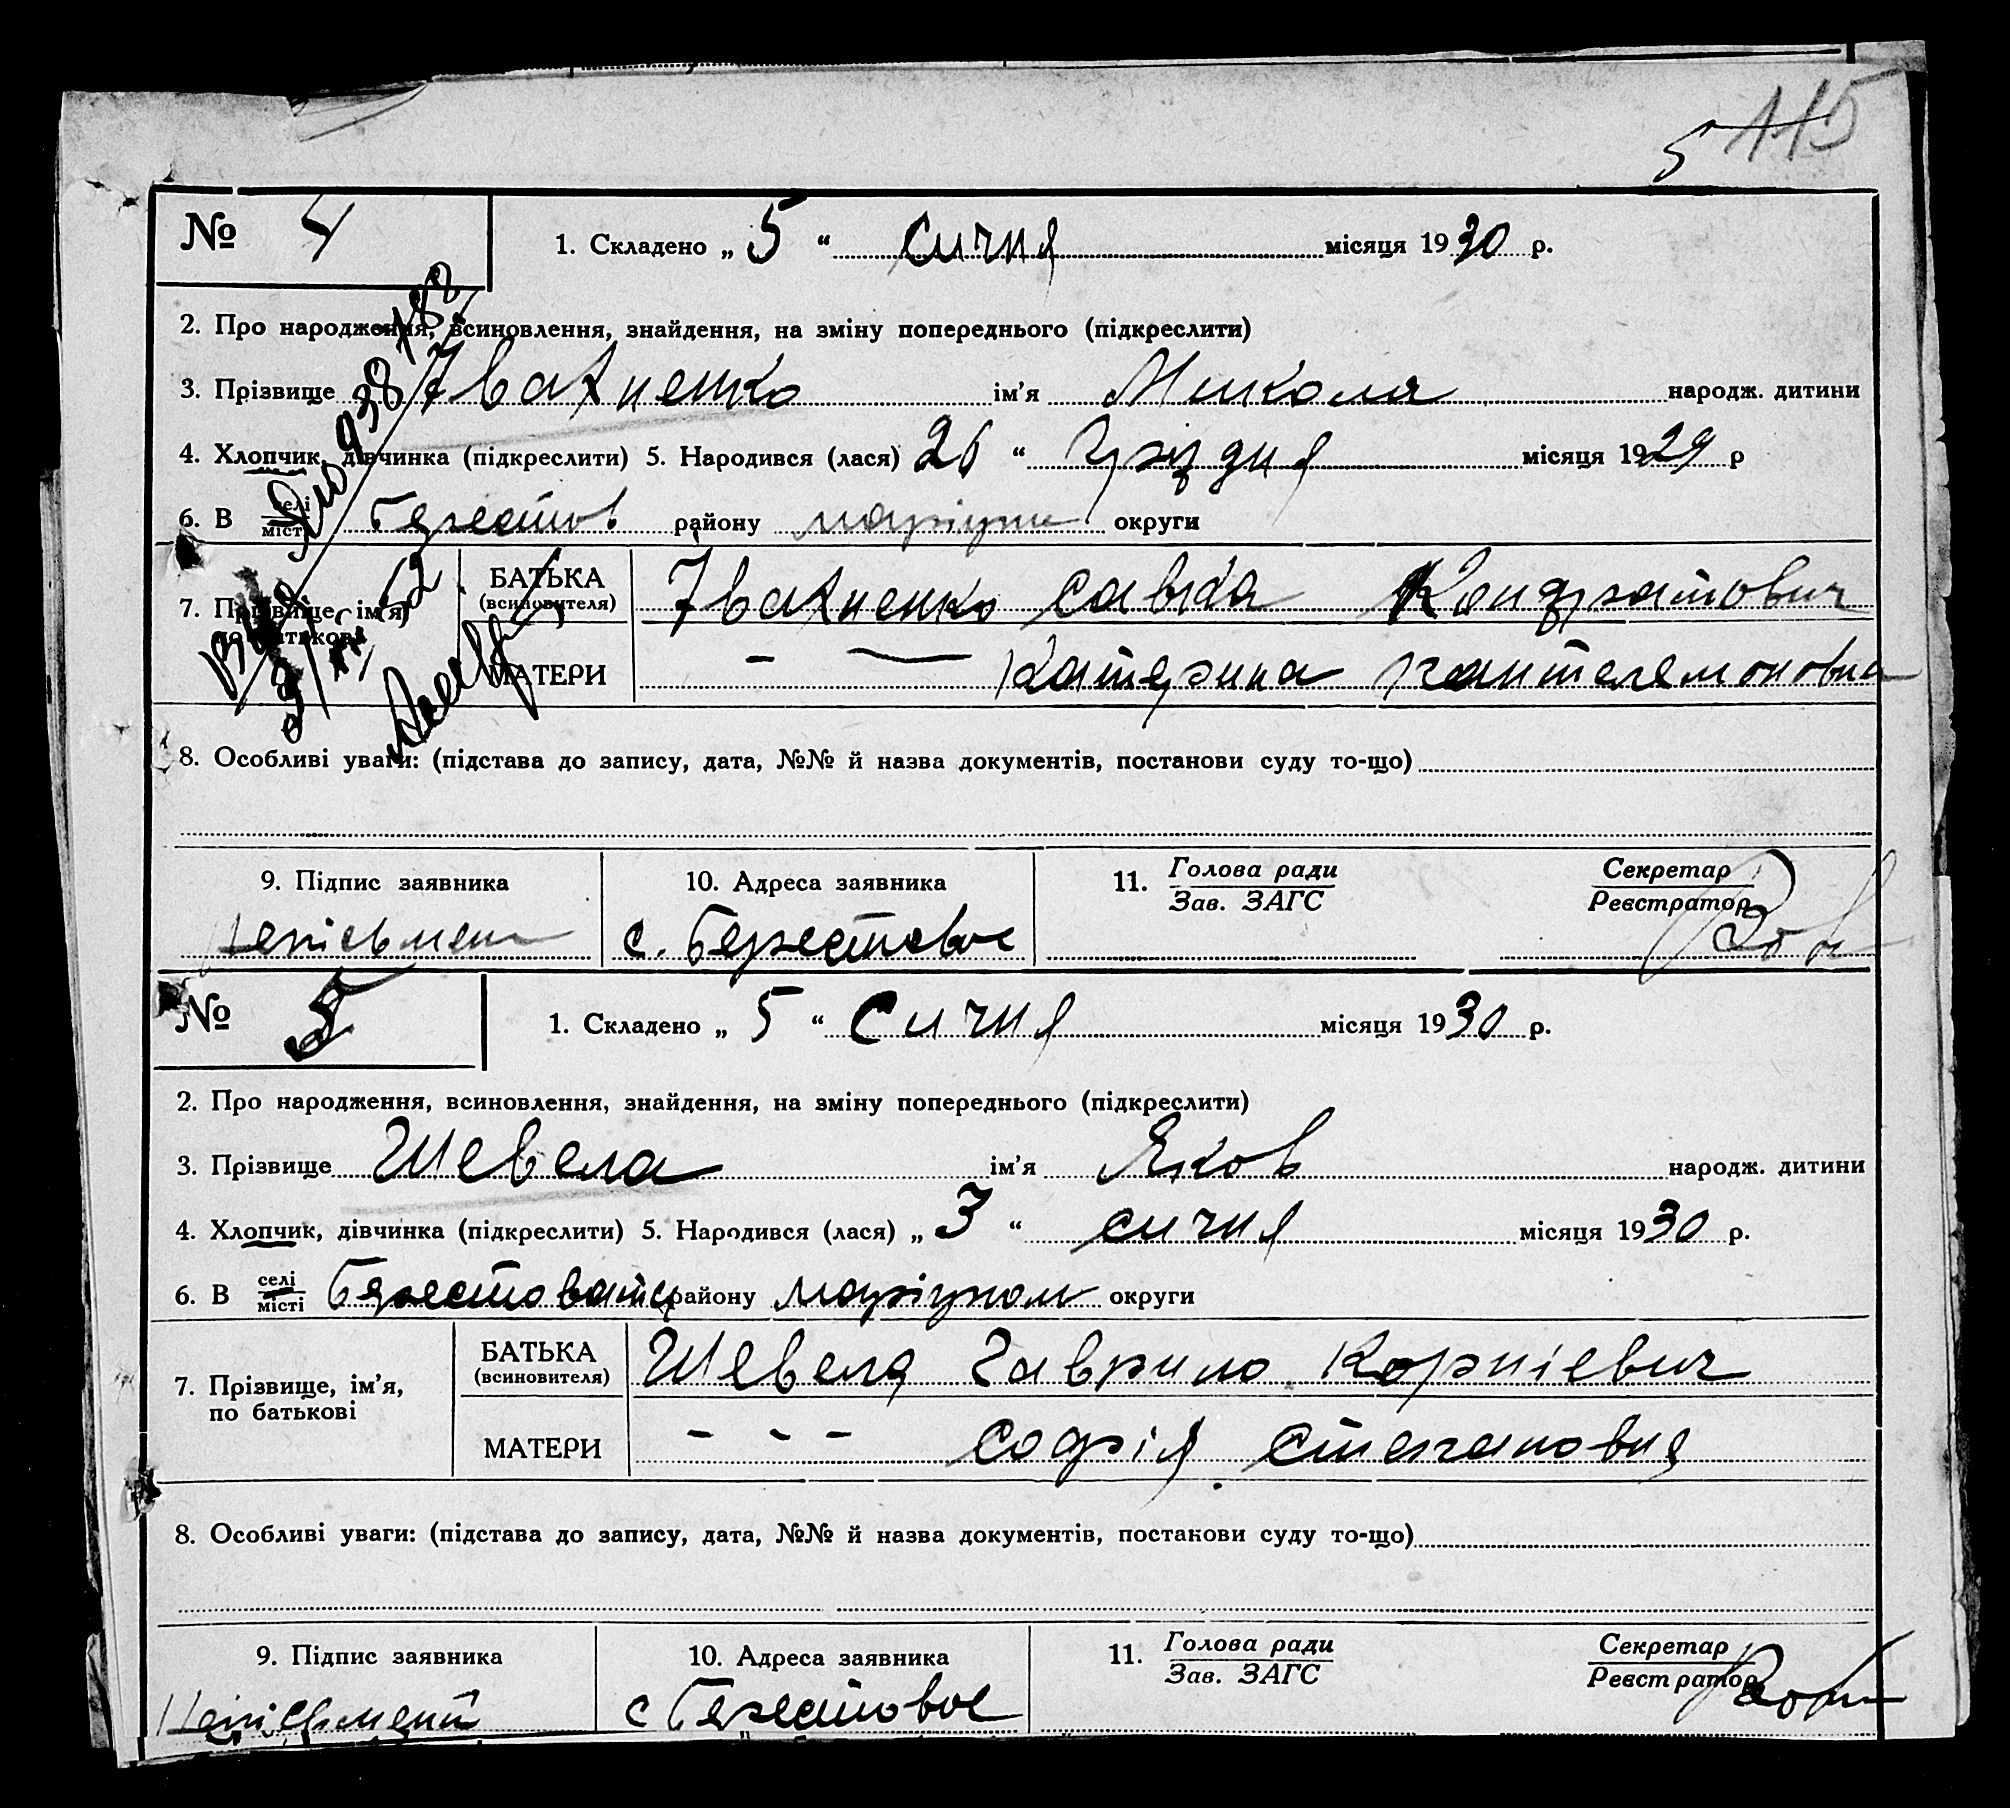 5 115
№ 4
1. Складено „ 5 “ сичня місяця 1930 р.
2. Про народження, всиновлення, знайдення, на зміну попереднього (підкреслити)
3. Прізвище Івахненко ім'я Микола народж. дитини
4. Хлопчик, дівчинка (підкреслити) 5. Народився (лася) 26 “ грудня місяця 1929 р
6. В селі місті Берестов району маріупи округи
7. Прізвище, ім'я, по батькові
БАТЬКА (всиновителя) Івахненко Савка Кондратович
МАТЕРИ - — Катерина Пантелемоновна
8. Особливі уваги: (підстава до запису, дата, №№ й назва документів, постанови суду то-що)
9. Підпис заявника 10. Адреса заявника 11. Голова ради Зав. ЗАГС Секретар Реєстратор
непісьмен с. Берестовое
№ 5
1. Складено „ 5 “ Сичня місяця 1930 р.
2. Про народження, всиновлення, знайдення, на зміну попереднього (підкреслити)
3. Прізвище Шевела ім'я Яков народж. дитини
4. Хлопчик, дівчинка (підкреслити) 5. Народився (лася) „ 3 “ сичня місяця 1930 р.
6. В селі місті району маріупом округи
7. Прізвище, ім'я, по батькові
БАТЬКА (всиновителя) Шевела Гаврило Корніевич
МАТЕРИ - - - Софія Степановна
8. Особливі уваги: (підстава до запису, дата, №№ й назва документів, постанови суду то-що)
9. Підпис заявника 10. Адреса заявника 11. Голова ради Зав. ЗАГС Секретар Реєстратор
с Берестовое